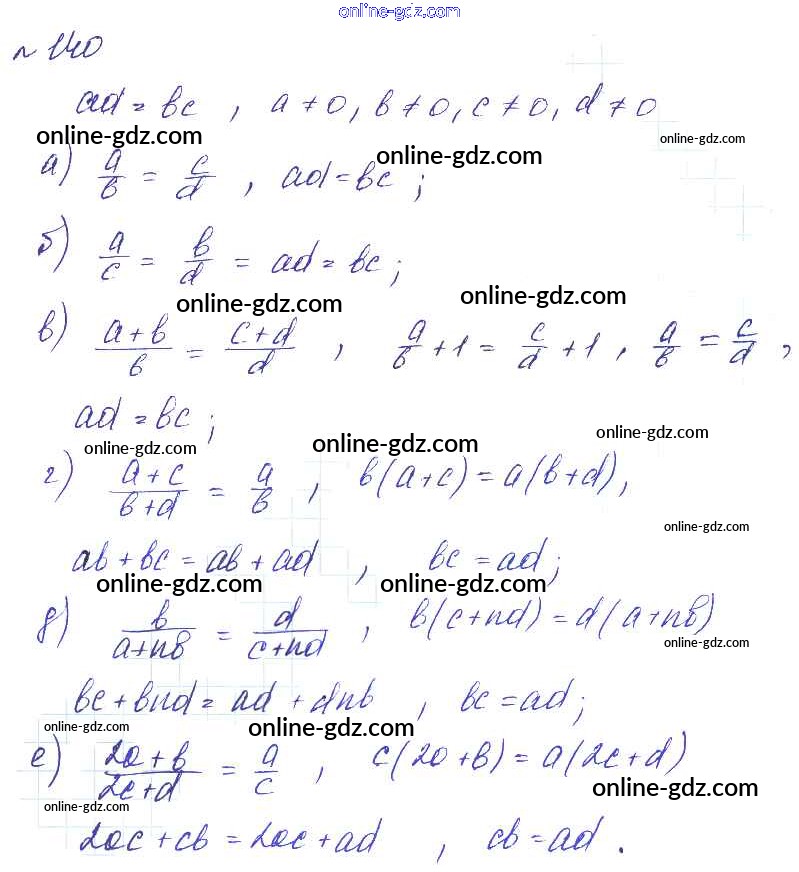 online-gdz.com
№ 140
ad = bc , a ≠ 0, b ≠ 0, c ≠ 0, d ≠ 0
online-gdz.com online-gdz.com online-gdz.com
а) a/b = c/d , ad = bc ;
б) a/c = b/d = ad = bc ;
online-gdz.com online-gdz.com
в) (a + b)/b = (c + d)/d , a/b + 1 = c/d + 1 , a/b = c/d ,
ad = bc ;
online-gdz.com online-gdz.com online-gdz.com
г) (a + c)/(b + d) = a/b , b(a + c) = a(b + d),
online-gdz.com
ab + bc = ab + ad , bc = ad ;
online-gdz.com online-gdz.com
д) b/(a + nb) = d/(c + nd) , b(c + nd) = d(a + nb)
online-gdz.com
bc + bnd = ad + dnb , bc = ad ;
online-gdz.com online-gdz.com
е) (2a + b)/(2c + d) = a/c , c(2a + b) = a(2c + d)
online-gdz.com online-gdz.com
2ac + cb = 2ac + ad , cb = ad .